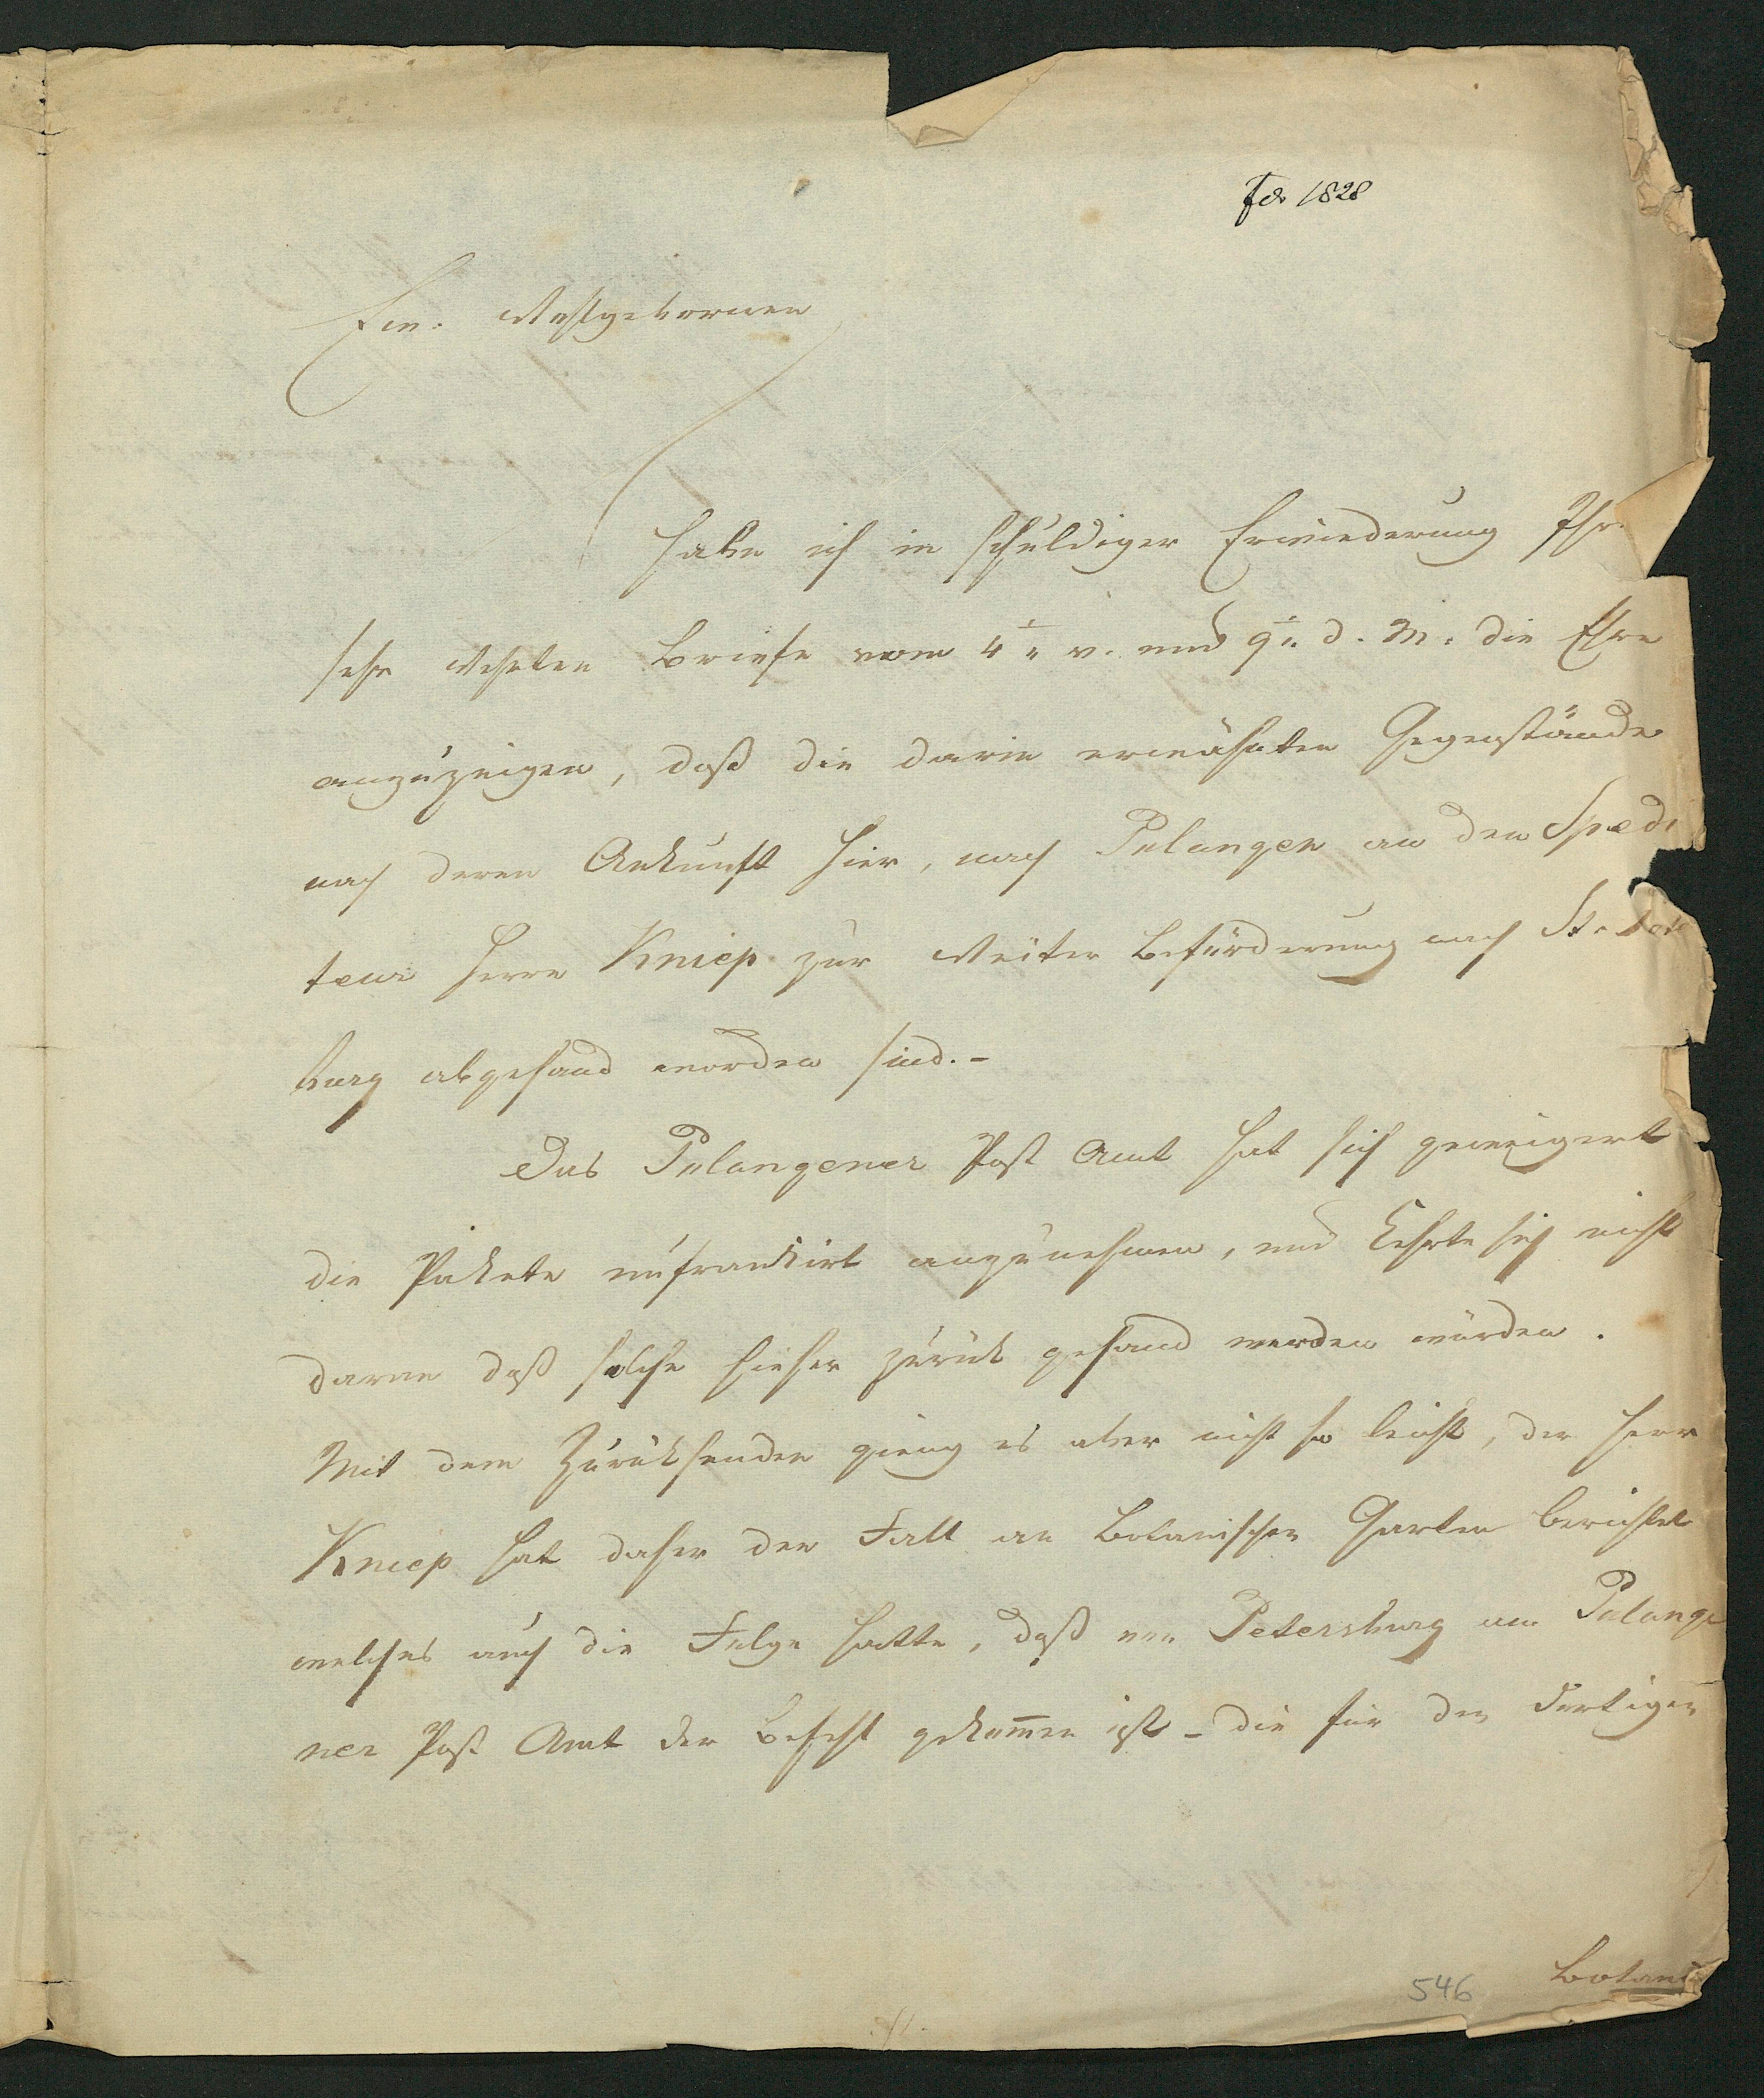 Feb 1828
Ew. Wohlgebornen
habe ich in schuldiger Erwiederung Ihr
sehr wehrten Briefe vom 4t. v. und 9t. d. M. die Ehre
anzuzeigen, daß die darin erwähnten Gegenstände
nach deren Ankunft hier, nach Polangen an den Spedi
teur Herrn Kniep zur Weiter Beförderung nach St. Pete
burg abgesand worden sind. -
Das Polangener Post Amt hat sich geweigert
die Pakete unfrankirt anzunehmen, und kehrte sich nicht
daran daß solche hieher zurük gesand werden würden.
Mit dem Zurüksenden gieng es aber nicht so leicht, der Herr
Kniep hat daher den Fall an Botanischen Garten berichtet
welches auch die Folge hatte, daß von Petersburg am Polange
ner Post Amt der Befehl gekom̅en ist - die für den dortigen
546 Botani